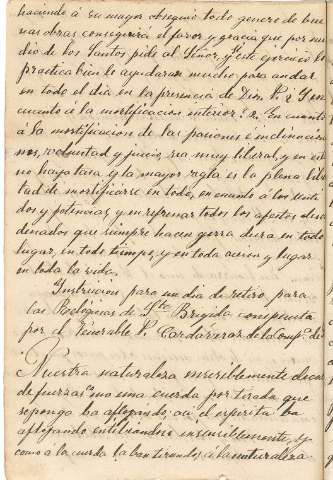 haciendo á su mayor obsequio todo genero de bue
nas obras conseguirá el favor y gracia que por me
dio de los Santos pide al Señor, y este ejercicio lo
practica bien le ayudara mucho para andar
en todo el dia en la presencia de Dios. P. y en
cuanto á la mortificacion interior? R. En cuanto
á la mortificacion de las paciones é inclinacio
nes, voluntad y juicio, sea muy liberal, y en esto
no haya tasa y la mayor regla es la plena liber
tad de mortificarse en todo, en cuanto á los senti
dos y potencias, y en refrenar todos los afectos desor
denados que siempre hacen gerra dura en todo
lugar, en todo tiempo, y en toda acion y lugar
en toda la vida.
Instrucion para un dia de retiro para
las Religiosas de Sta Brigida compuesta
por el Venerable P. Cardaveraz de la Comp.ª de
Nuestra naturaleza insensiblemente decae
de fuerzas como una cuerda por tirada que
se ponga ba aflojando, asi el espiritu ba
aflojando entibiandose insensiblemente, y
como á la cuerda la ban tirando, á la naturaleza